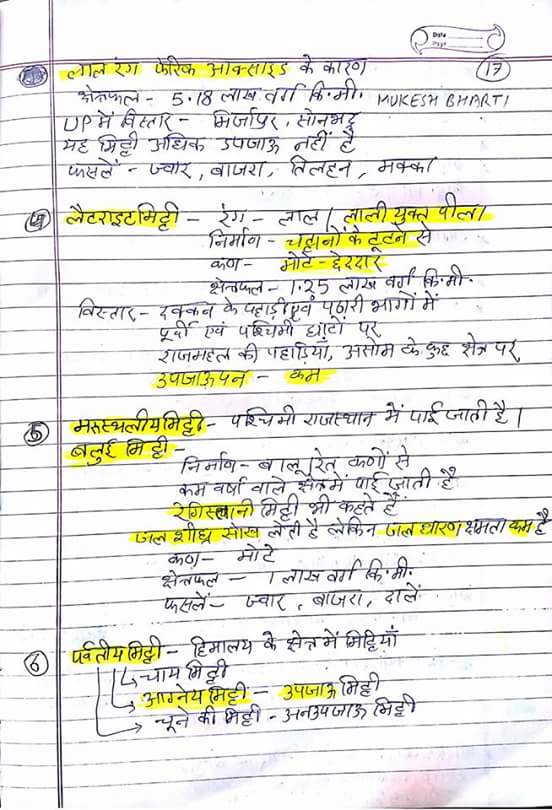 Date
Page
17
लाल रंग फेरिक आक्साइड के कारण
क्षेत्रफल - 5.18 लाख वर्ग कि.मी. MUKESH BHARTI
UP में विस्तार - मिर्जापुर, सोनभद्र
यह मिट्टी अधिक उपजाऊ नहीं है
फसलें - ज्वार, बाजरा, तिलहन, मक्का
4 लैटराइट मिट्टी - रंग - लाल / लाली युक्त पीला
निर्माण - चट्टानों के टूटने से
कण - मोटे - छेददार
क्षेत्रफल - 1.25 लाख वर्ग कि.मी.
विस्तार - दक्कन के पहाड़ी एवं पठारी भागों में
पूर्वी एवं पश्चिमी घाटों पर
राजमहल की पहाड़ियाँ, असोम के कुछ क्षेत्र पर
उपजाऊपन - कम
5 मरुस्थलीय मिट्टी - पश्चिमी राजस्थान में पाई जाती है।
बलुई मिट्टी -
निर्माण - बालू रेत कणों से
कम वर्षा वाले क्षेत्र में पाई जाती है
रेगिस्तानी मिट्टी भी कहते हैं
जल शीघ्र सोख लेती है लेकिन जल धारण क्षमता कम है
कण - मोटे
क्षेत्रफल - 1 लाख वर्ग कि.मी.
फसलें - ज्वार, बाजरा, दालें
6 पर्वतीय मिट्टी - हिमालय के क्षेत्र में मिट्टियाँ
चाय मिट्टी
आग्नेय मिट्टी - उपजाऊ मिट्टी
चूने की मिट्टी - अनउपजाऊ मिट्टी